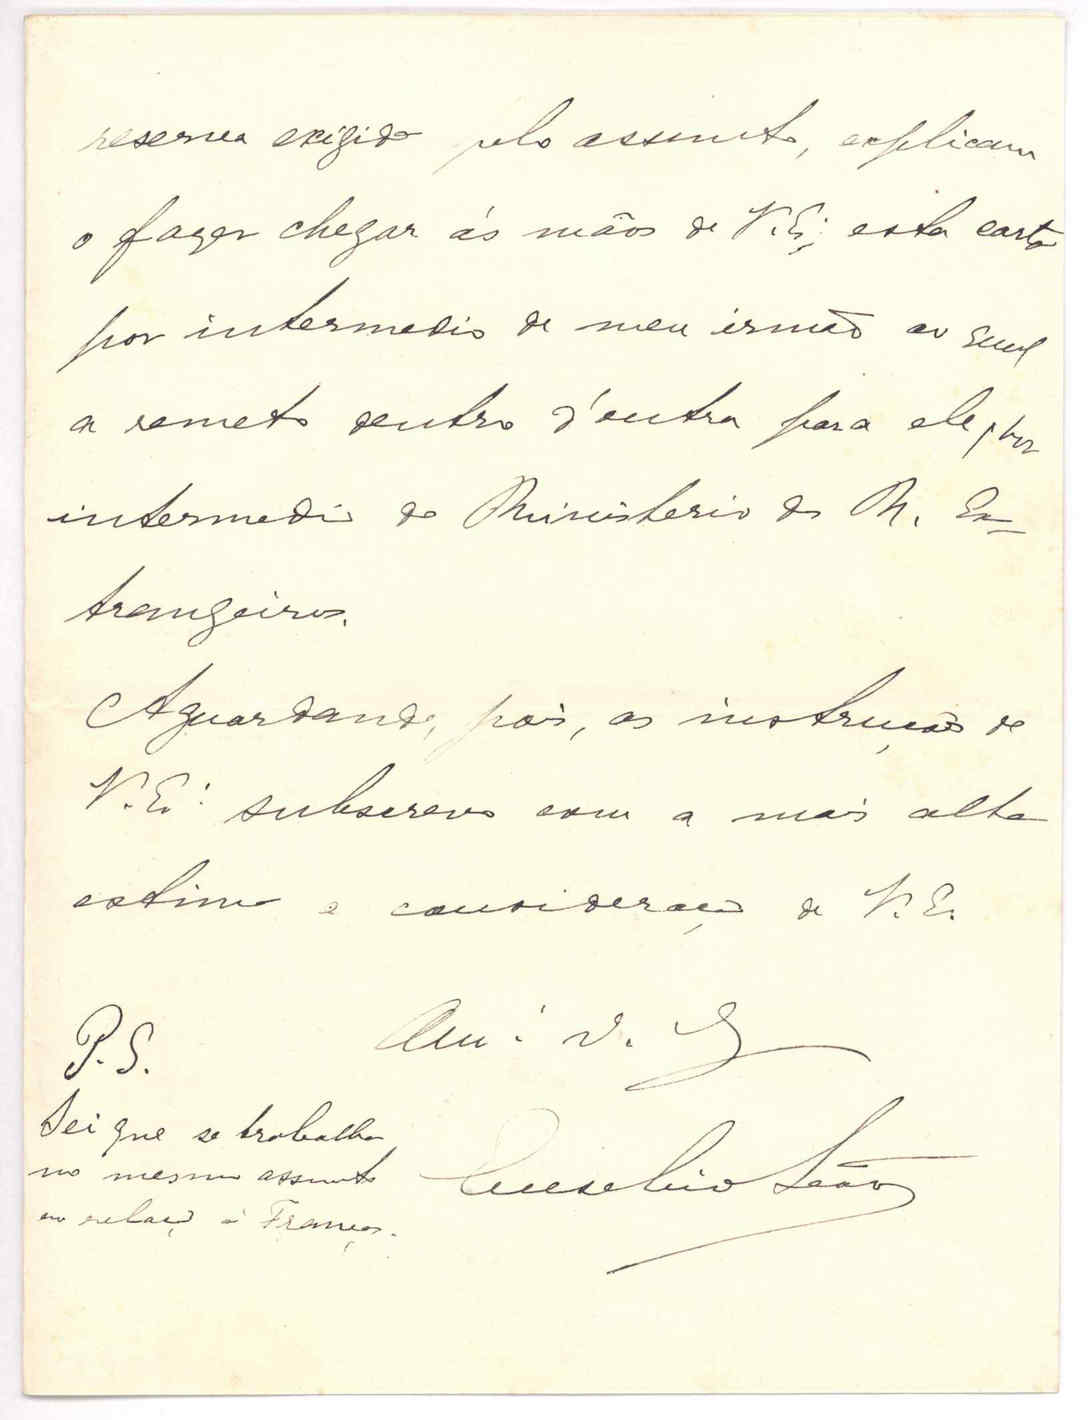 reserva exigida pelo assunto, explicam
o fazer chegar ás mãos de V. Ex.ª esta carta
por intermedio de meu irmão ao qual
a remeto dentro d'outra para ele, por
intermedio do Ministerio dos N. Es-
trangeiros.
Aguardando, pois, as instruções de
V. Ex.ª subscrevo com a mais alta
estima e consideração de V. Ex.
Am.º
Eusebio Leão
P.S.
Sei que se trabalha
no mesmo assunto
em relação á França.